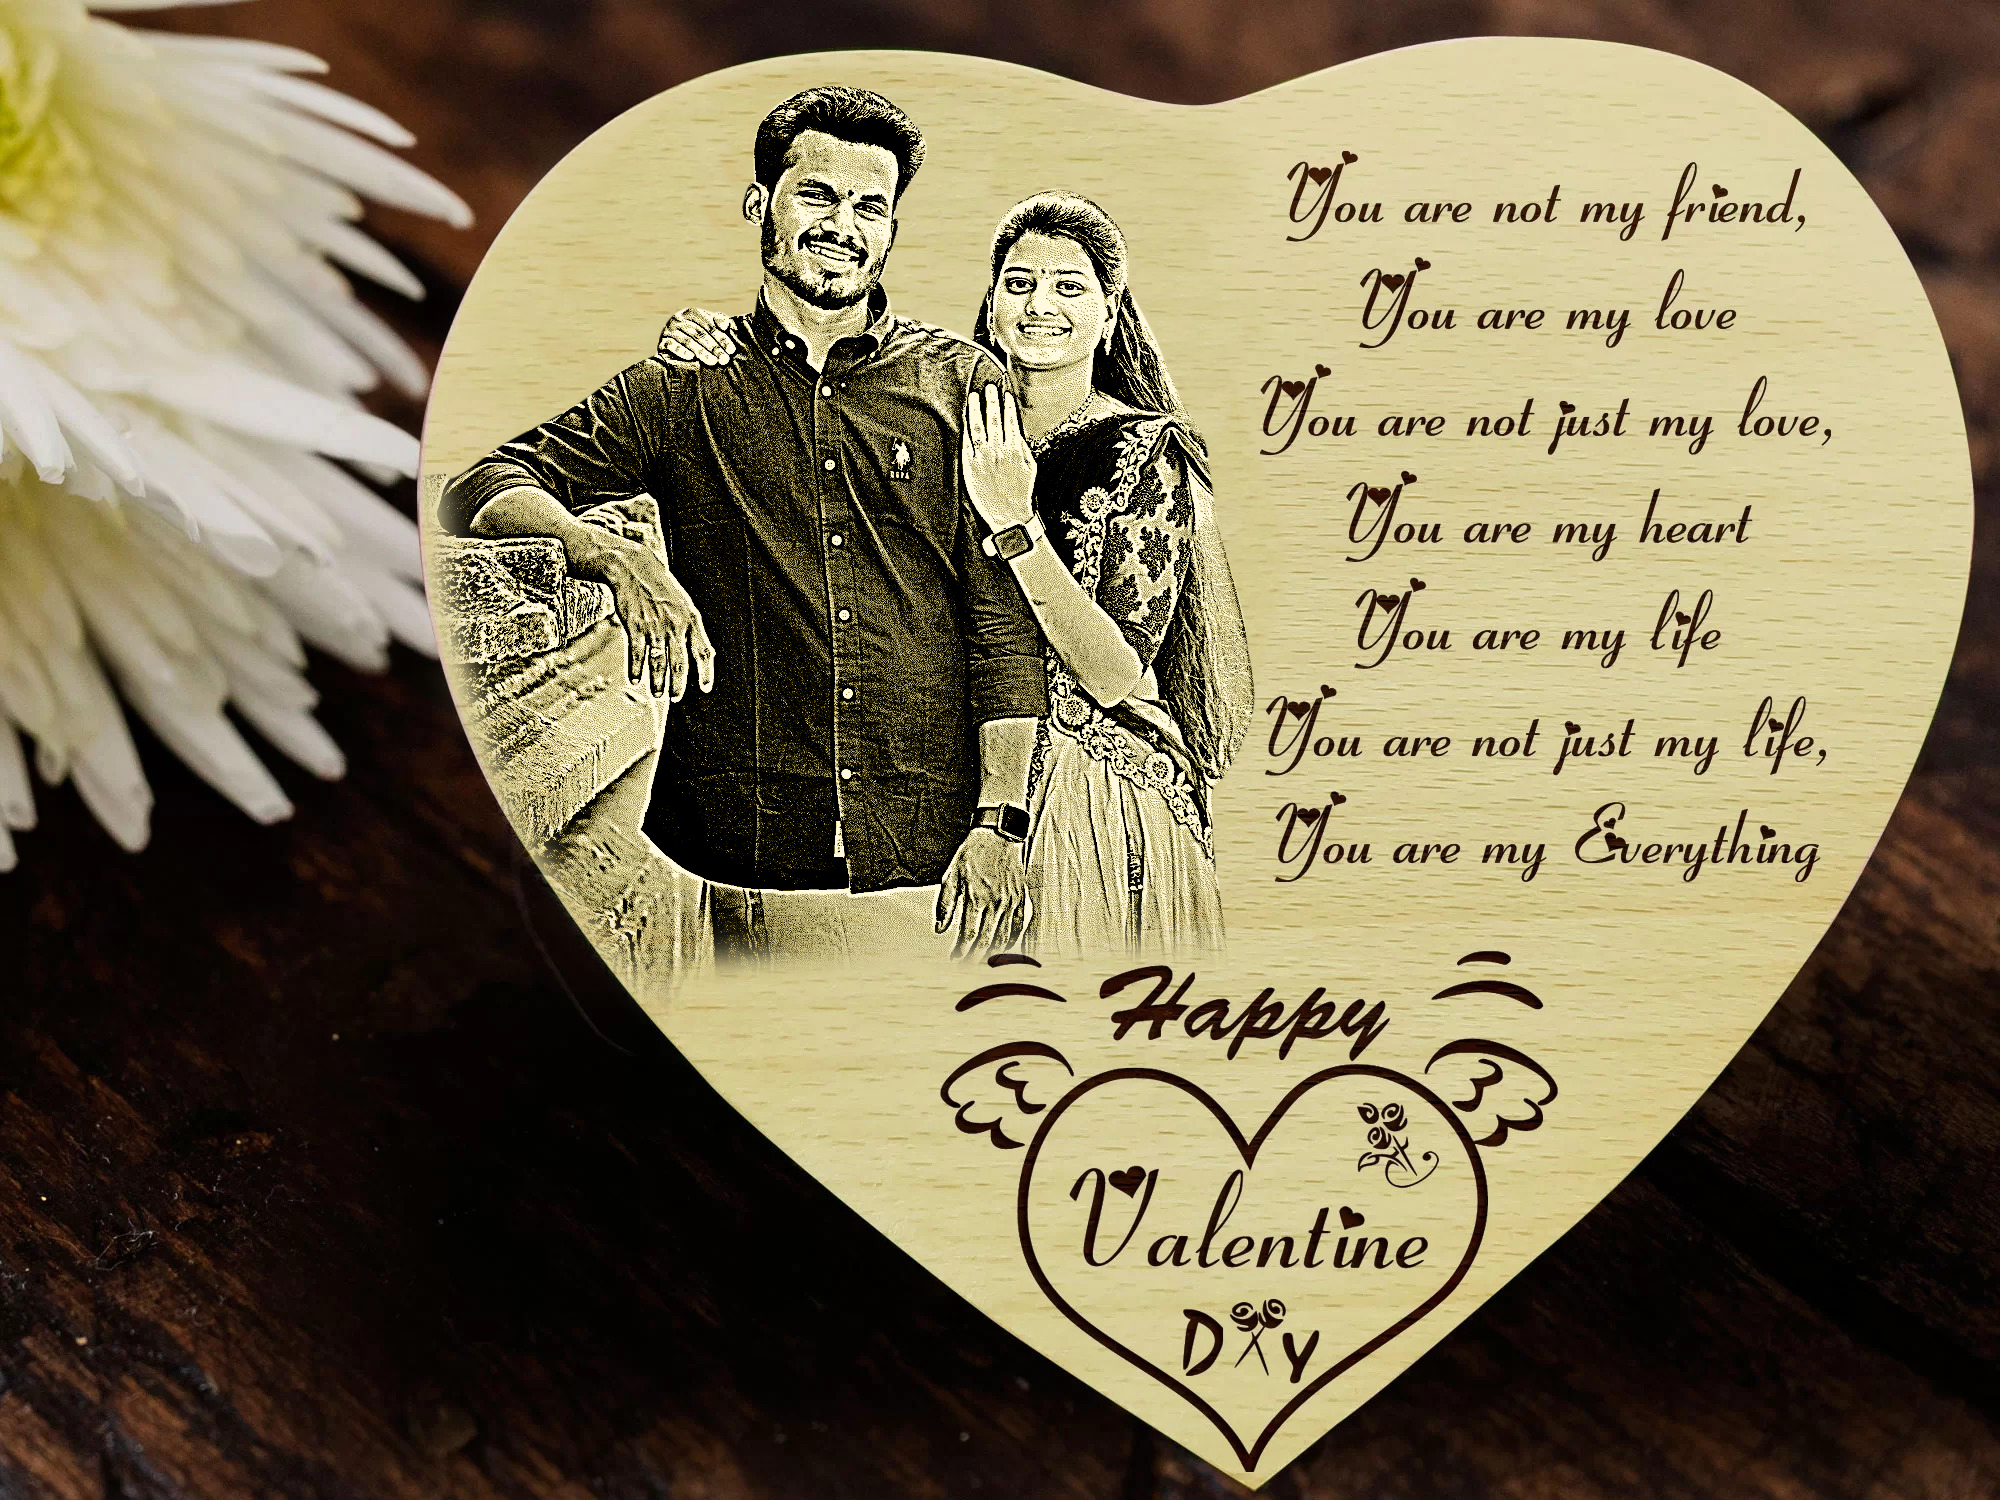 You are not my friend,
You are my love
You are not just my love,
You are my heart
You are my life
You are not just my life,
You are my Everything
Happy
Valentine
DAY